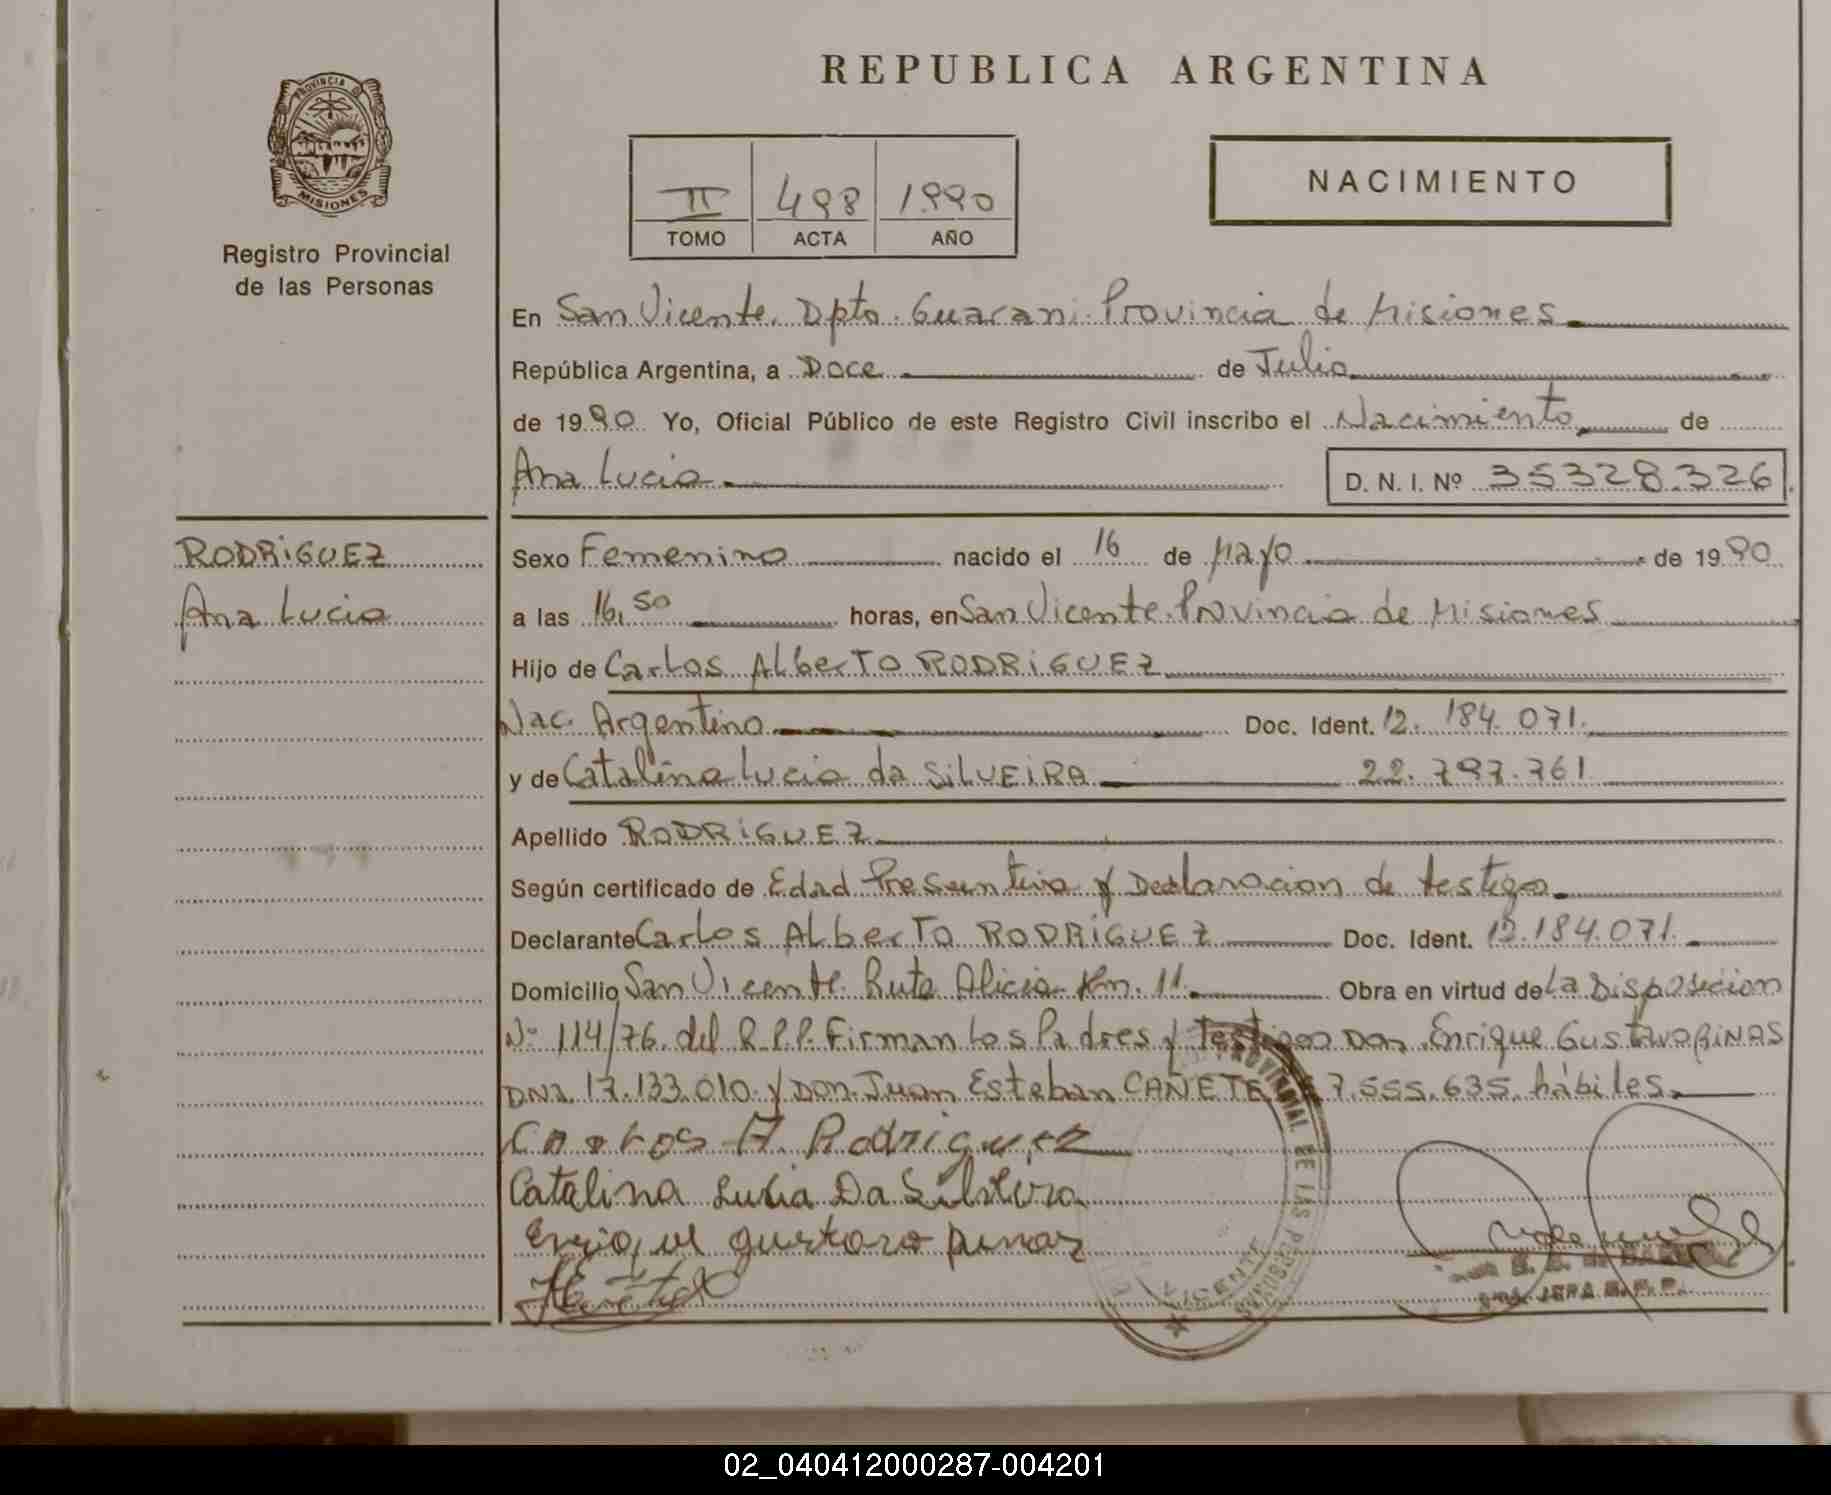 REPUBLICA ARGENTINA
PROVINCIA D
MISIONES
Registro Provincial
de las Personas
II 498 1990
TOMO ACTA AÑO
NACIMIENTO
En San Vicente. Dpto. Guarani. Provincia de Misiones
República Argentina, a Doce de Julio
de 1990 Yo, Oficial Público de este Registro Civil inscribo el Nacimiento de
Ana Lucia D. N. I. Nº 35328.326
RODRiGUEZ
Ana Lucia
Sexo Femenino nacido el 16 de Mayo de 1990
a las 16,50 horas, en San Vicente. Provincia de Misiones
Hijo de Carlos ALberTO RODRiGUEZ
Nac. Argentino Doc. Ident. 12. 184. 071.
y de Catalina Lucia da SiLVEiRA 22.797.761
Apellido RODRiGUEZ
Según certificado de Edad Presuntiva y Declaracion de testigo
Declarante Carlos ALberTO RODRiGUEZ Doc. Ident. 12.184.071.
Domicilio San Vicente. Ruta Alicia Km. 11. Obra en virtud de La Disposicion
Nº 114/76. del R.P.P. Firman Los Padres y Testigos Don Enrique Gustavo PiNAS
DNI. 17.133.010. y Don Juan Esteban CAÑETE 7.555.635. hábiles.
Carlos A. Rodriguez
Catalina Lucia Da Silveira
Enrique gustavo pinas
PROVINCIAL DE LAS PERSONAS
VICENTE
JEFA R.P.P.
02_040412000287-004201